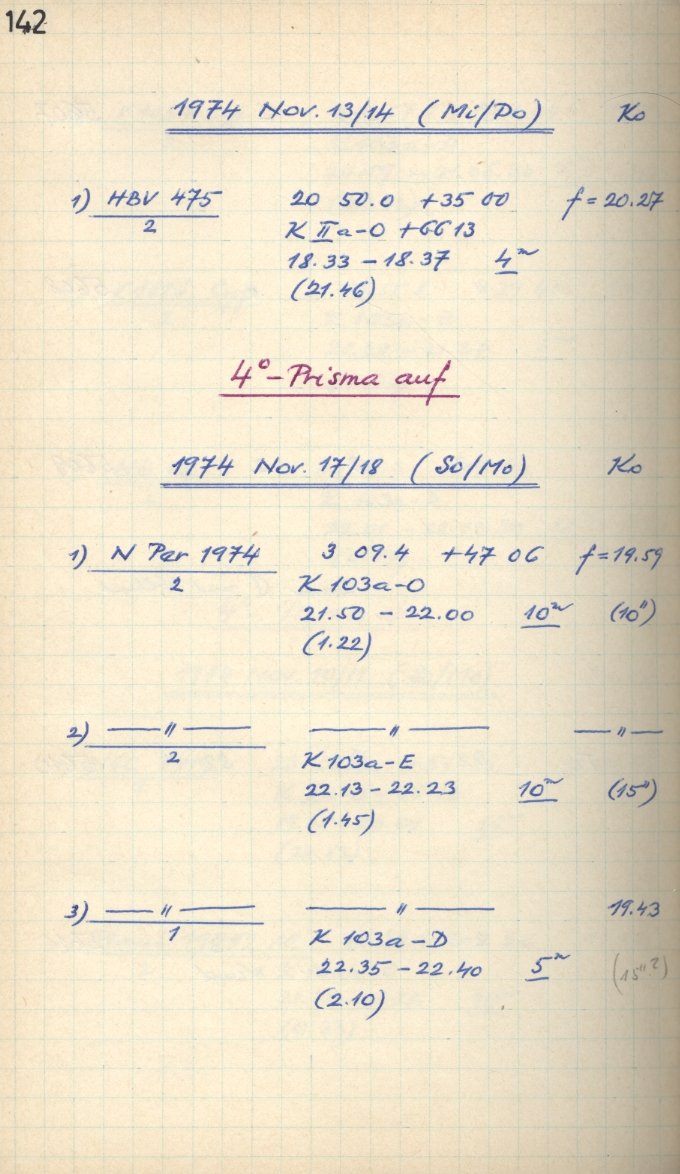 142
1974 Nov. 13/14 (Mi/Do) Ko
1) HBV 475 20 50.0 +35 00 f = 20.27
2 K IIa-O +GG13
18.33 – 18.37 4m
(21.46)
4°-Prisma auf
1974 Nov. 17/18 (So/Mo) Ko
1) N Per 1974 3 09.4 +47 06 f = 19.59
2 K 103a-O
21.50 – 22.00 10m (10")
(1.22)
2) — " — — " — — " —
2 K 103a-E
22.13 – 22.23 10m (15")
(1.45)
3) — " — — " — 19.43
1 K 103a-D
22.35 – 22.40 5m (15"?)
(2.10)